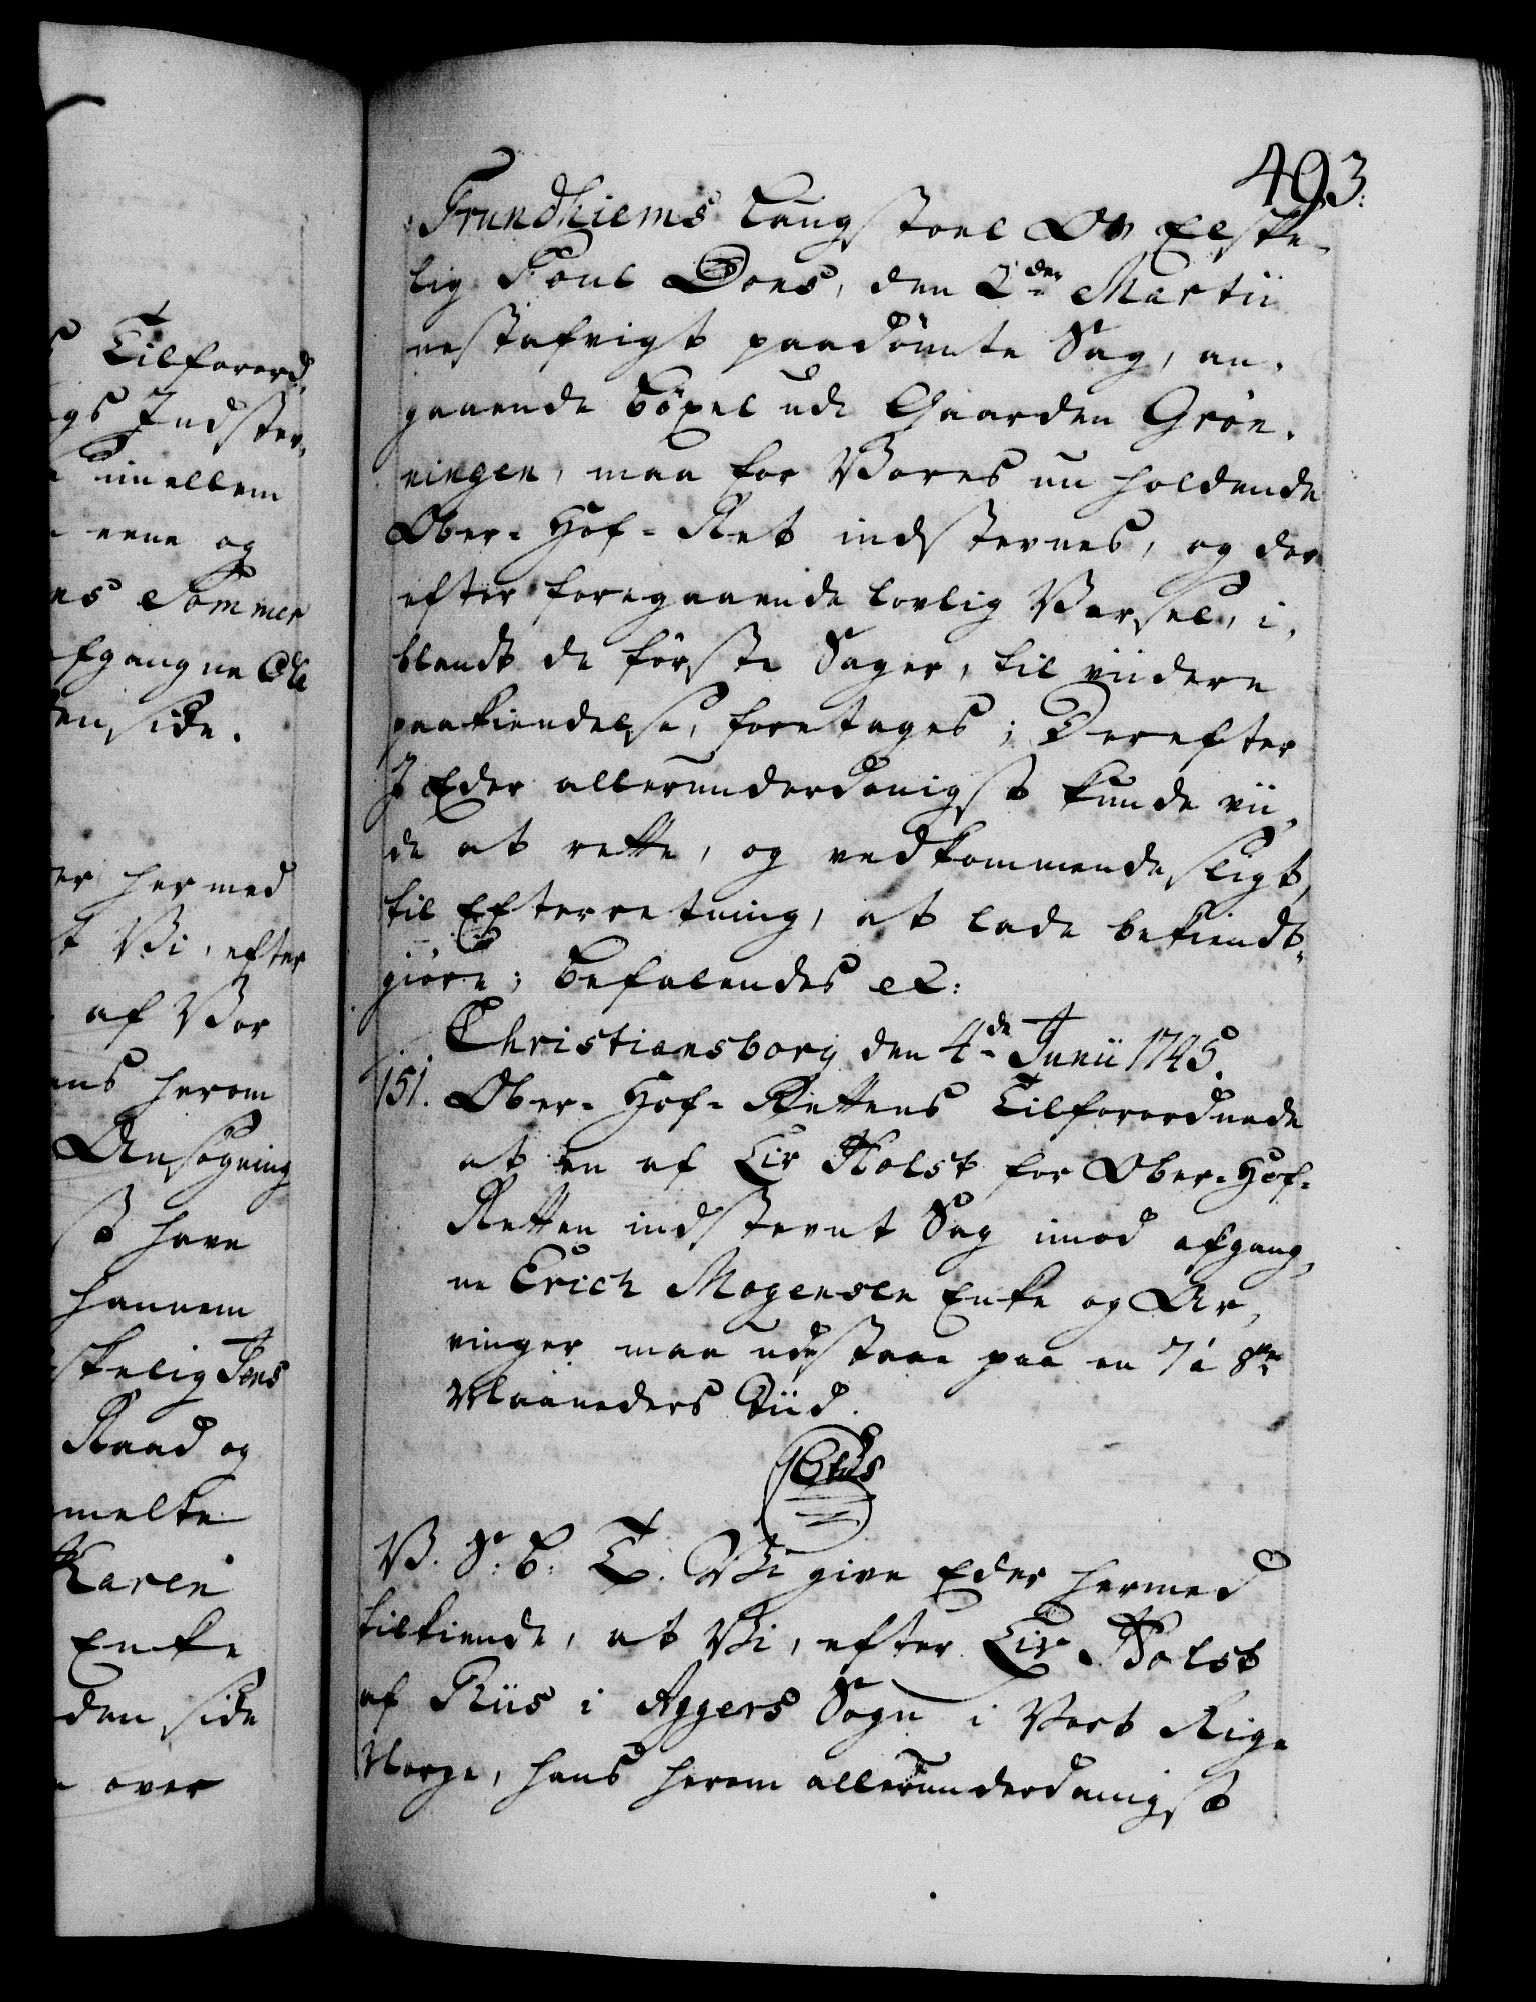 493.
Trundhiems Laugstoel Os Elske-
lig Poul Dons, den 2den Martii
nestafvigt paadömte Sag, an-
gaaende böxel udi Gaarden Gröe-
ningen, maa for Vores nu holdende
Ober-Hof-Ret indstevnes, og der
efter foregaaende lovlig Varsel, i-
blandt de förste Sager, til viidere
paakiendelse, foretages; Derefter
I Eder allerunderdanigst kunde vii-
de at rette, og vedkommende sligt,
til Efterretning, at lade bekiendt-
giöre; befalendes etc:
Christiansborg den 4de Junii 1745.
151. Ober-Hof-Rettens Tilforordnede
at en af Lir Holst for Ober-Hof-
Retten indstevnt Sag imod afgang-
ne Erich Mogensen Enke og Ar-
vinger maa udstaae paa en 7 à 8te
Maaneders Tiid.
CVI:
V. S. G. T. Vi give Eder hermed
tilkiende, at Vi, efter Lir Holst
af Riis i Aggers Sogn i Vort Rige
Norge, hans herom allerunderdanigst
Tilforord-
gs Indstev-
imellem
eene og
es Sommer
afgangne Ole
den side.
er hermed
t Vi, efter
af Vor
ens herom
Ansögning
st have
hannem
skelig Jens
Raad og
melte
Karen
Enke
den side
over